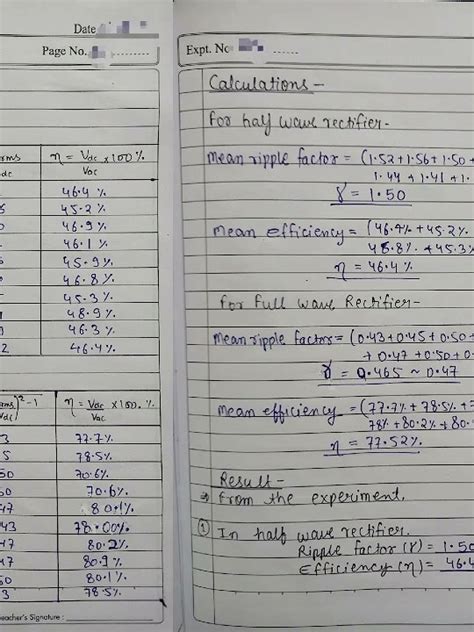 Date
Page No.
rms
dc
η = Vdc x100 %.
Vac
46.4 %
5 45.2 %
0 46.9 %
46.1 %
45.9 %.
46.8 %.
45.3 %.
48.9 %.
9 46.3 %.
2 46.4 %.
rms)²-1
Vdc
η = Vdc x100. %.
Vac
3 77.7 %
5 78.5 %.
50 70.6 %.
50 70.6 %.
47 80.1 %
43 78.00 %
47 80.2 %.
47 80.9 %
50 80.1 %
3 78.5 %
eacher's Signature :
Expt. No
Calculations -
For half wave rectifier -
Mean ripple factor = (1.52+1.56+1.50+
1.44+1.41+1.
γ = 1.50
Mean efficiency = (46.4%+45.2%
48.8%+45.3%
η = 46.4 %
For Full wave Rectifier -
Mean ripple factor = (0.43+0.45+0.50+
+0.47+0.50+0.
γ = 0.465 ~ 0.47
Mean efficiency = (77.7%+78.5%+
78%+80.2%+80.
η = 77.52%
Result -
From the experiment,
① In half wave rectifier,
Ripple factor (γ) = 1.50
Efficiency (η) = 46.4